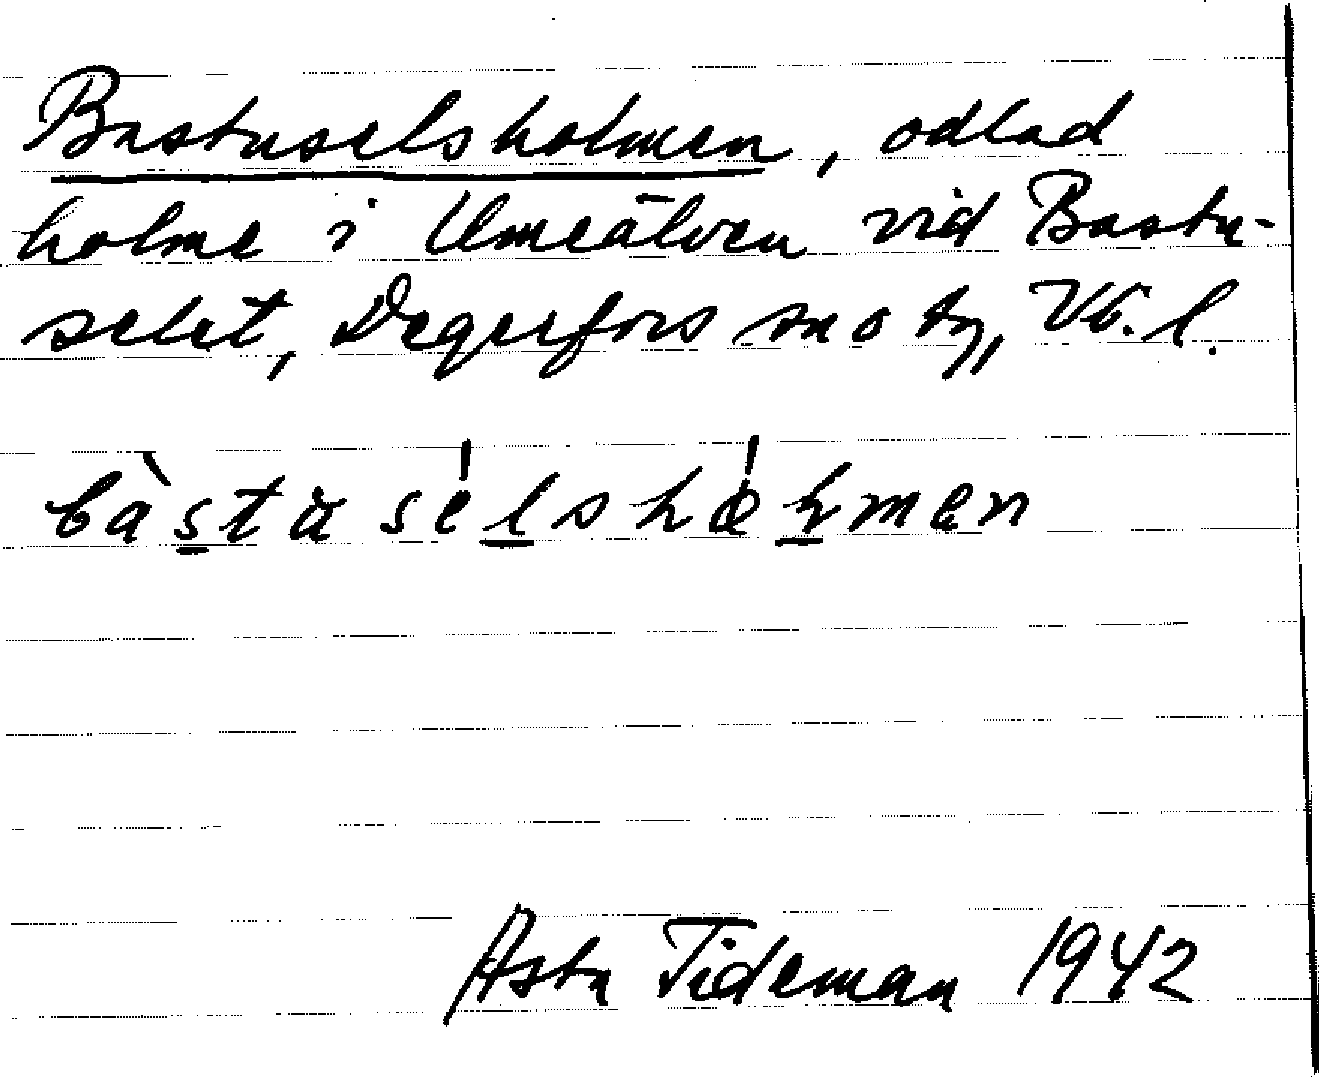 Bastuselsholmen, odlad
holme i Umeälven vid Bastu-
selet, Degerfors sn o tg, Vb. l.
Asta Tideman 1942